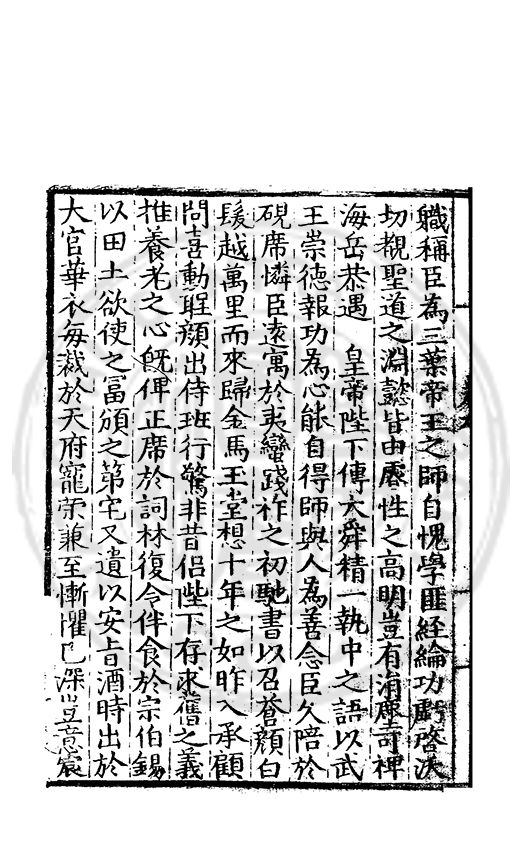 軄稱臣為三葉帝王之師自愧學匪經綸功虧啓沃
切覩聖道之淵懿皆由睿性之高明豈有涓塵可裨
海岳恭遇　皇帝陛下傳大舜精一執中之語以武
王崇德報功為心能自得師與人為善念臣久陪於
硯席憐臣遠寓於夷蠻踐祚之初馳書以召蒼顔白
髮越萬里而來歸金馬玉堂想十年之如昨入承顧
問喜動聖顔出侍班行驚非昔侶陛下存求舊之義
推養老之心旣俾正席於詞林復令伴食於宗伯錫
以田土欲使之富頒之第宅又遺以安旨酒時出於
大官華衣每裁於天府寵榮兼至慚懼已深豈意宸